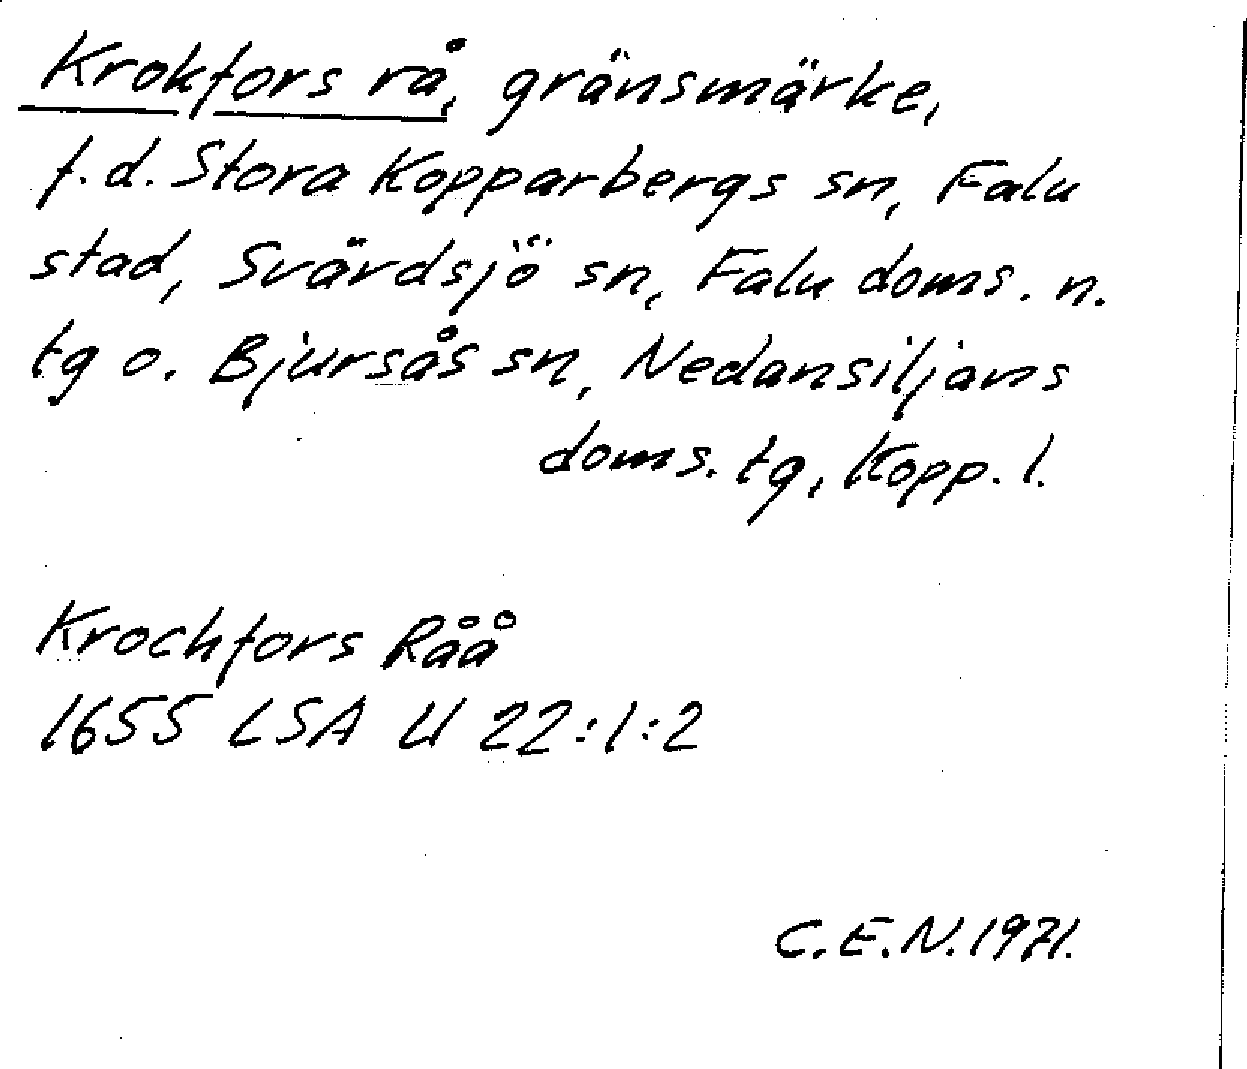 Krokfors rå, gränsmärke,
f.d. Stora Kopparbergs sn, Falu
stad, Svärdsjö sn, Falu doms. n.
tg o. Bjursås sn, Nedansiljans
doms. tg, Kopp. l.
Krochfors Råå
1655 LSA U 22:1:2
C.E.N. 1971.